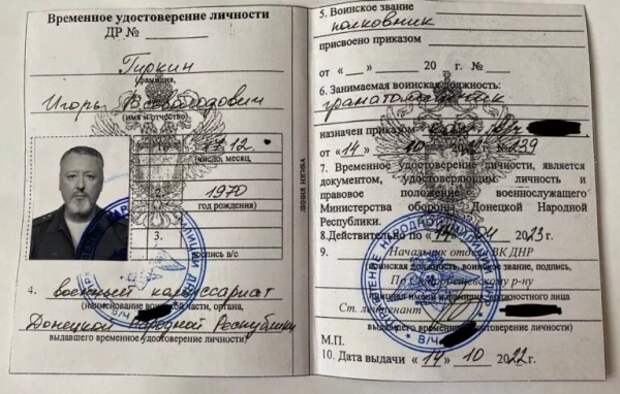 Временное удостоверение личности
ДР №
Гиркин
фамилия,
Игорь Всеволодович
(имя и отчество)
1. 17.12.
(число, месяц,
2. 1970
год рождения)
3.
роспись в/с
4. военный комиссариат
(наименование воинской части, органа,
Донецкой Народной Республики
выдавшего временное удостоверение личности)
В/Ч
5. Воинское звание
полковник
присвоено приказом
от «__» 20 г. №
6. Занимаемая воинская должность:
гранатометчик
назначен приказом
от «14» 10 2022 № 139
7. Временное удостоверение личности, является
документом, удостоверяющим личность и
правовое положение военнослужащего
Министерства обороны Донецкой Народной
Республики.
8.Действительно по «14» 04 2023г.
9. Начальник отдела ВК ДНР
воинская должность, воинское звание, подпись,
По Старобешевскому р-ну
должностного лица
Ст. лейтенант
выдавшего временное удостоверение личности)
В/Ч
М.П.
10. Дата выдачи «14» 10 2022г.